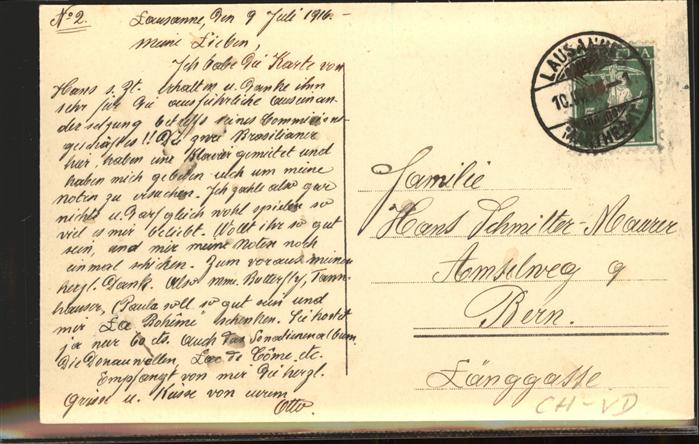 No 2.
Lausanne, den 9 Juli 1916.-
Meine Lieben,
Ich habe die Karte von
Hans s. Zt. erhalten u. danke ihm
sehr für die ausführliche Auseinan-
dersetzung betreffs seines Commissions-
geschäftes!! Die zwei Brasilianer
hier, haben ein Klavier gemietet und
haben mich gebeten euch um meine
Noten zu ersuchen. Ich zahle also gar
nichts u. darf gleich wohl spielen so
viel es mir beliebt. Wollt ihr so gut
sein, und mir meine Noten noch
einmal schicken. Zum voraus meinen
herzl. Dank. Also Mme. Butterfly, Tann-
häuser, (Paula soll so gut sein und
mir "La Bohême" schenken. Sie kostet
ja nur 60 cts. Auch das Sonatinenalbum,
Die Donauwellen, Lac de Côme, etc.
Empfangt von mir die herzl.
Grüsse u. Küsse von eurem
Otto.
LAUSANNE
10.VII.16.-1
Familie
Hans Schmitter-Maurer
Amselweg 9
Bern.
Länggasse.
CH-VD